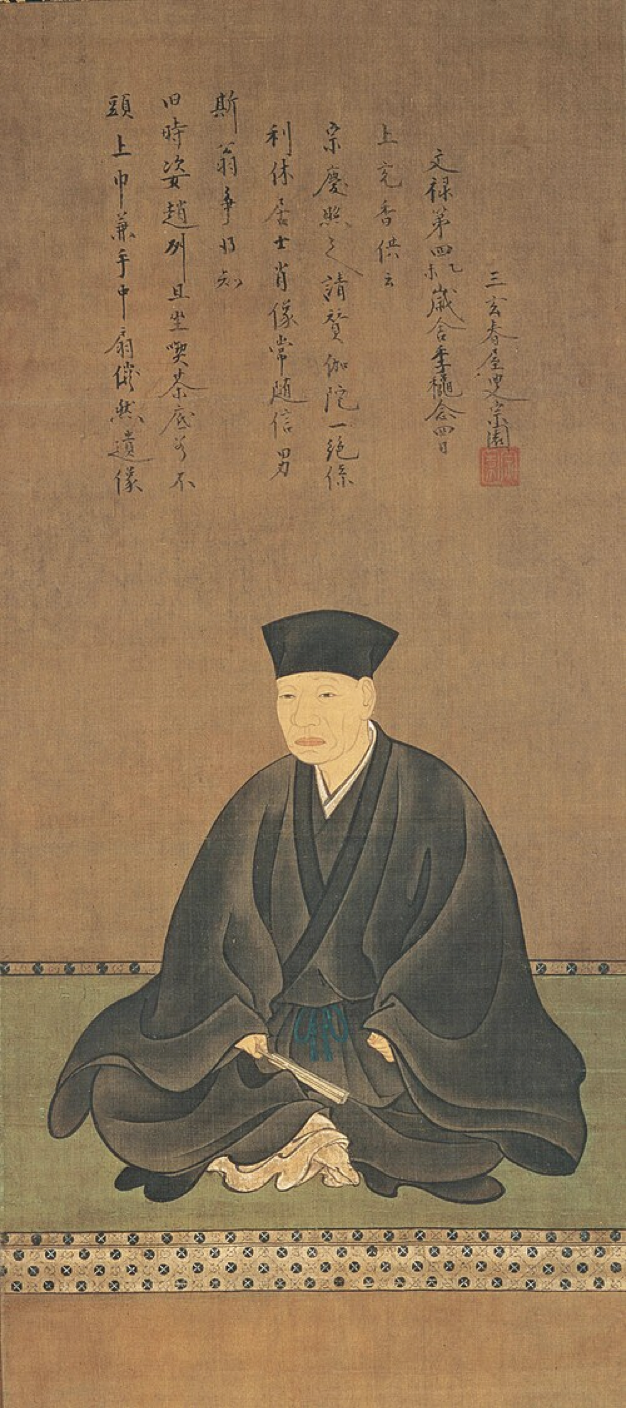 頭上巾兼手中扇儼然遺像
旧時姿趙州且坐喫茶底若不
斯翁争得知
利休居士肖像常随信男
宗慶照之請賛伽陀一絶係
上宛香供云
文禄第四乙未歳舎季穐念四日
三玄春屋叟宗園